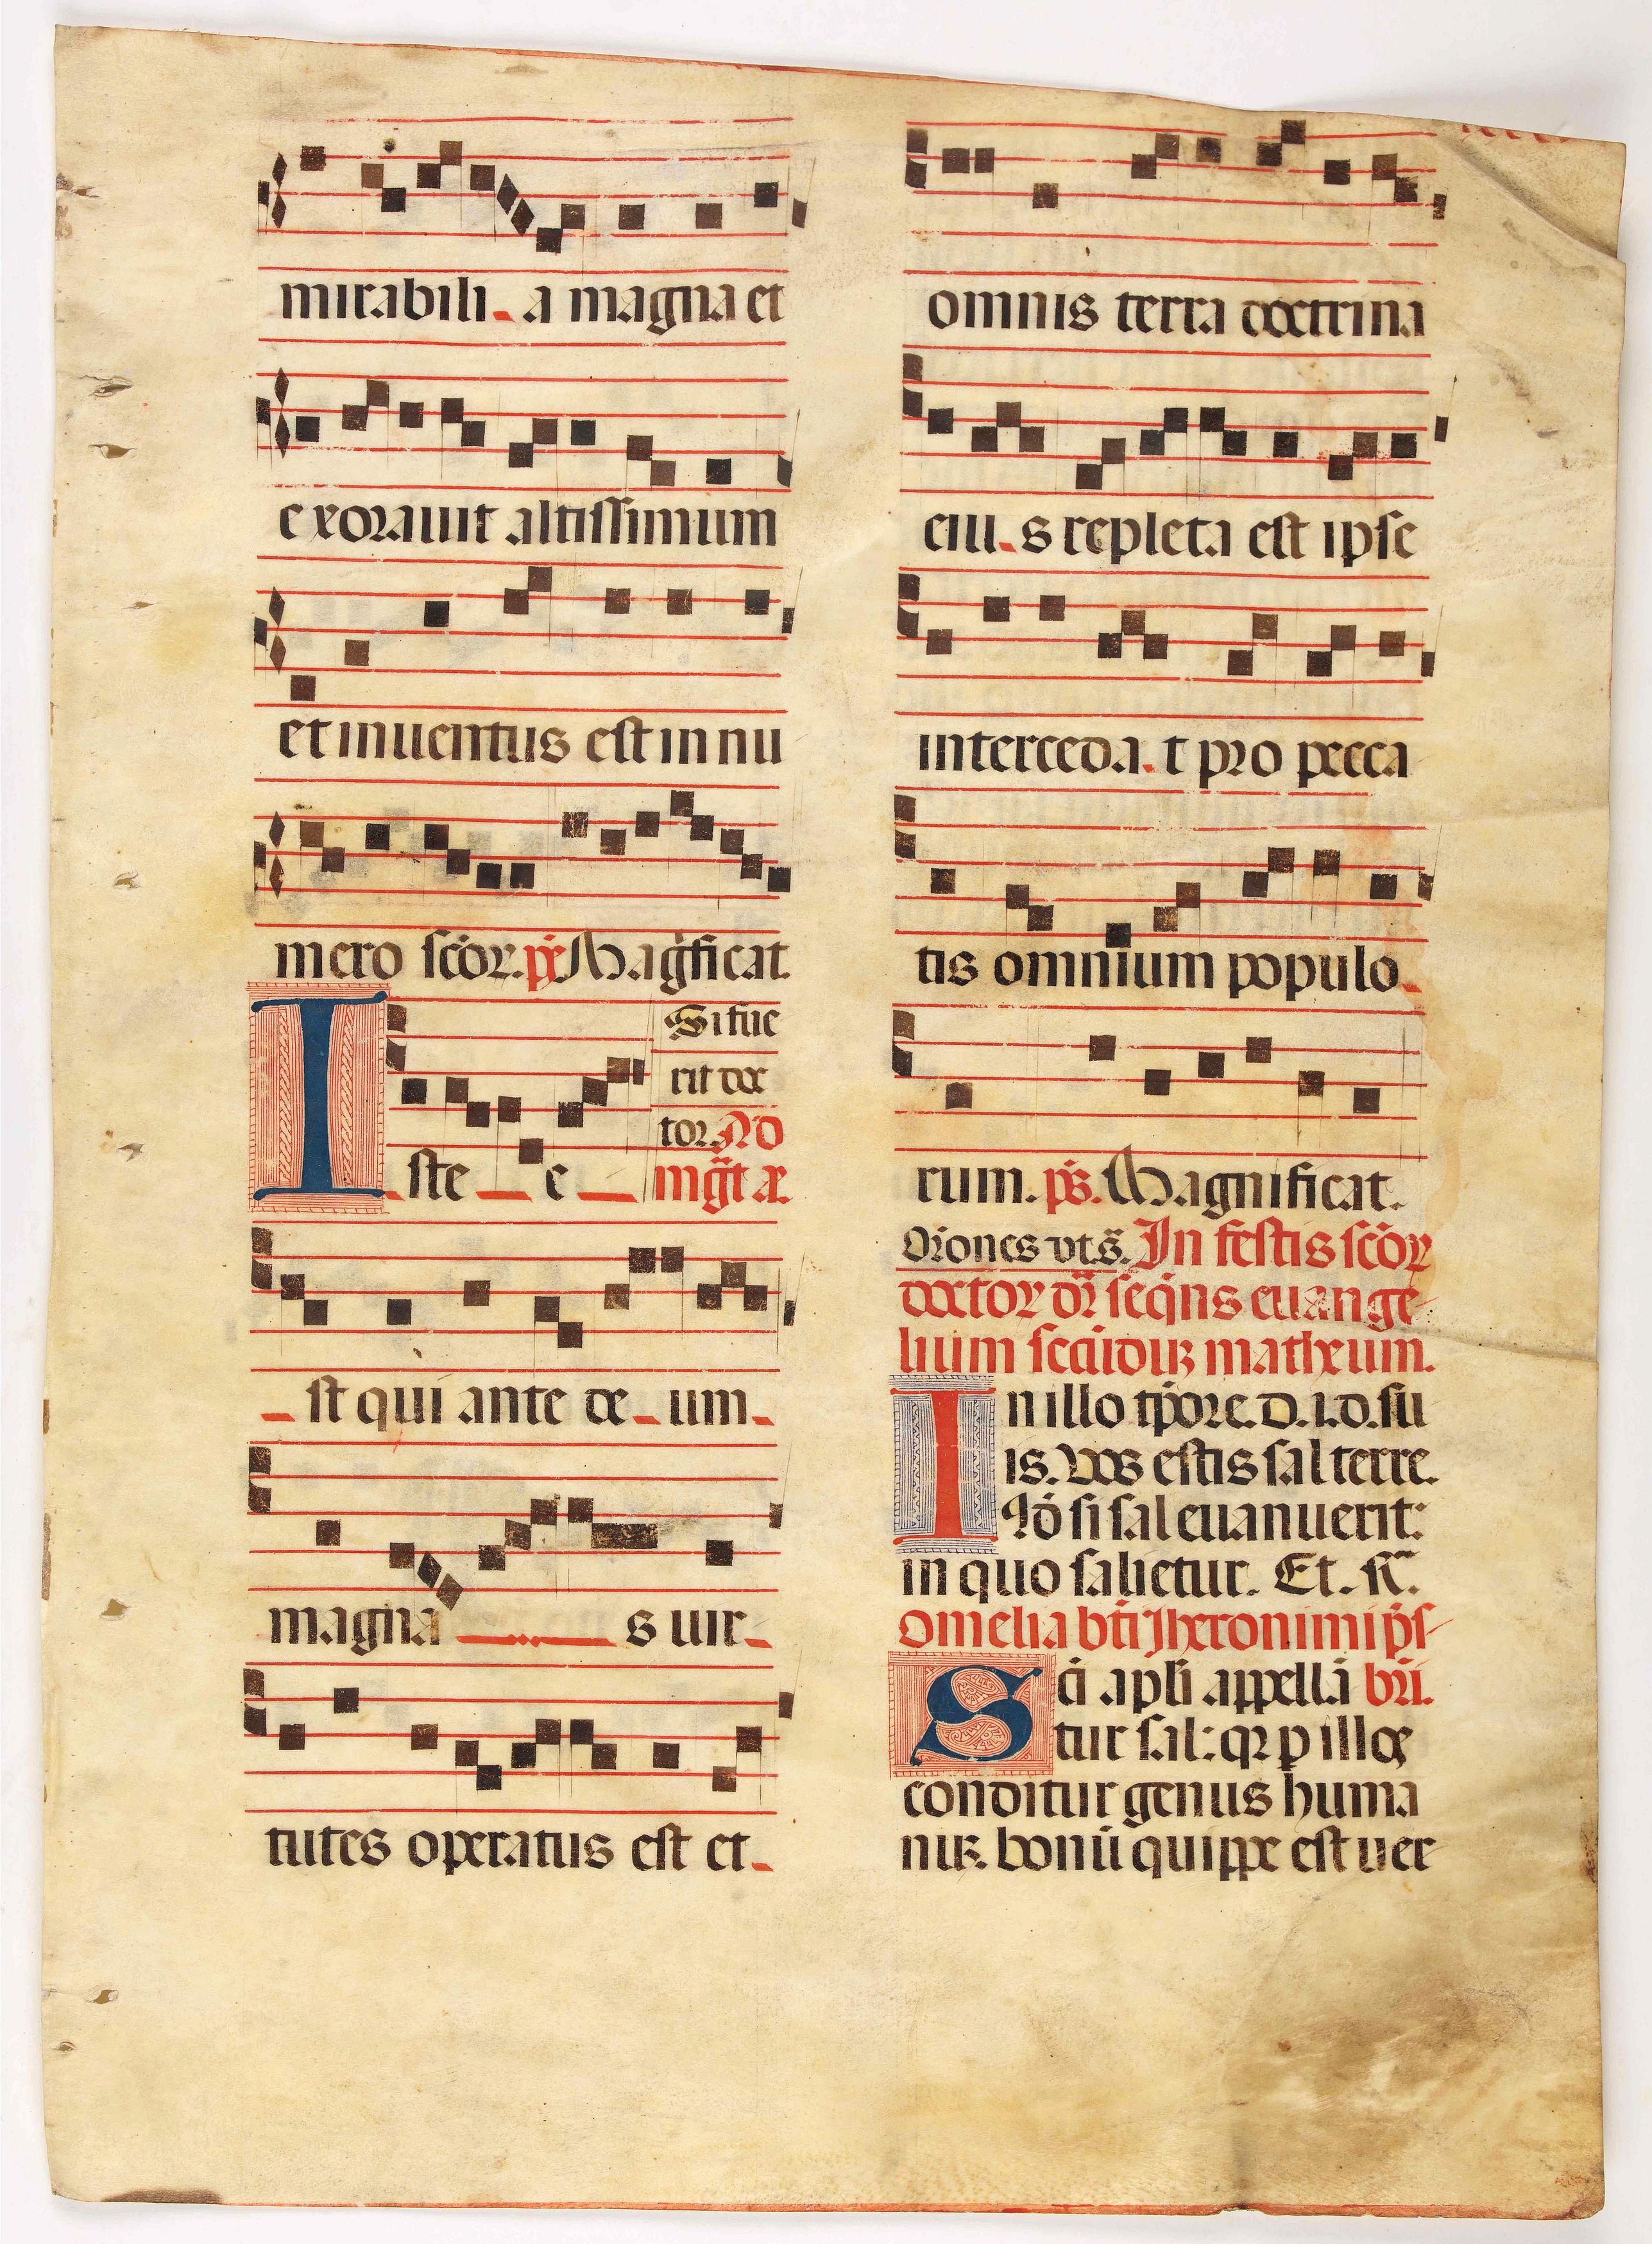 mirabili a magna et
exorauit altissimum
et inuentus est in nu
mero scōr. ps̄ Magn̄ficat
I ste e
Si fue
rit doc
tor. Ad
mḡt a.
st qui ante de um
magna s uir
tutes operatus est et
omnis terra doctrina
eiu s repleta est ipse
interceda t pro pecca
tis omnium populo
rum. ps̄. Magnificat.
Orōnes vt s̄. In festis scōꝝ
doctoꝝ dr̄ seqn̄s euange
lium secūduꝫ matheum.
In illo tp̄ore. D. i. d. su
is. Vos estis sal terre.
Qō si sal euanuerit:
in quo salietur. Et. R̄.
Omelia bt̄i Jheronimi p̄s
Sci apl̄i appellā bri.
tur sal: qꝛ ꝑ illos
conditur genus huma
nuꝫ. bonū quippe est uer